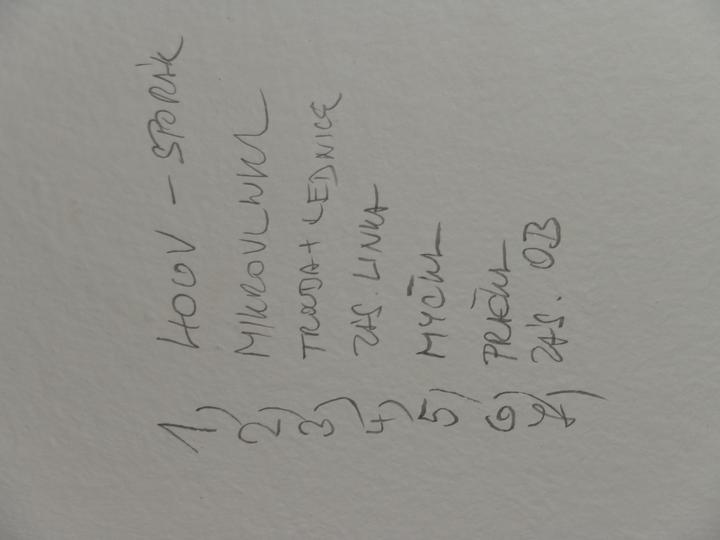 1) 400V - SPORÁK
2) MIKROVLNKA
3) TROUBA + LEDNICE
4) ZÁS. LINKA
5) MYČKA
6) PRAČKA
7) ZÁS. OB